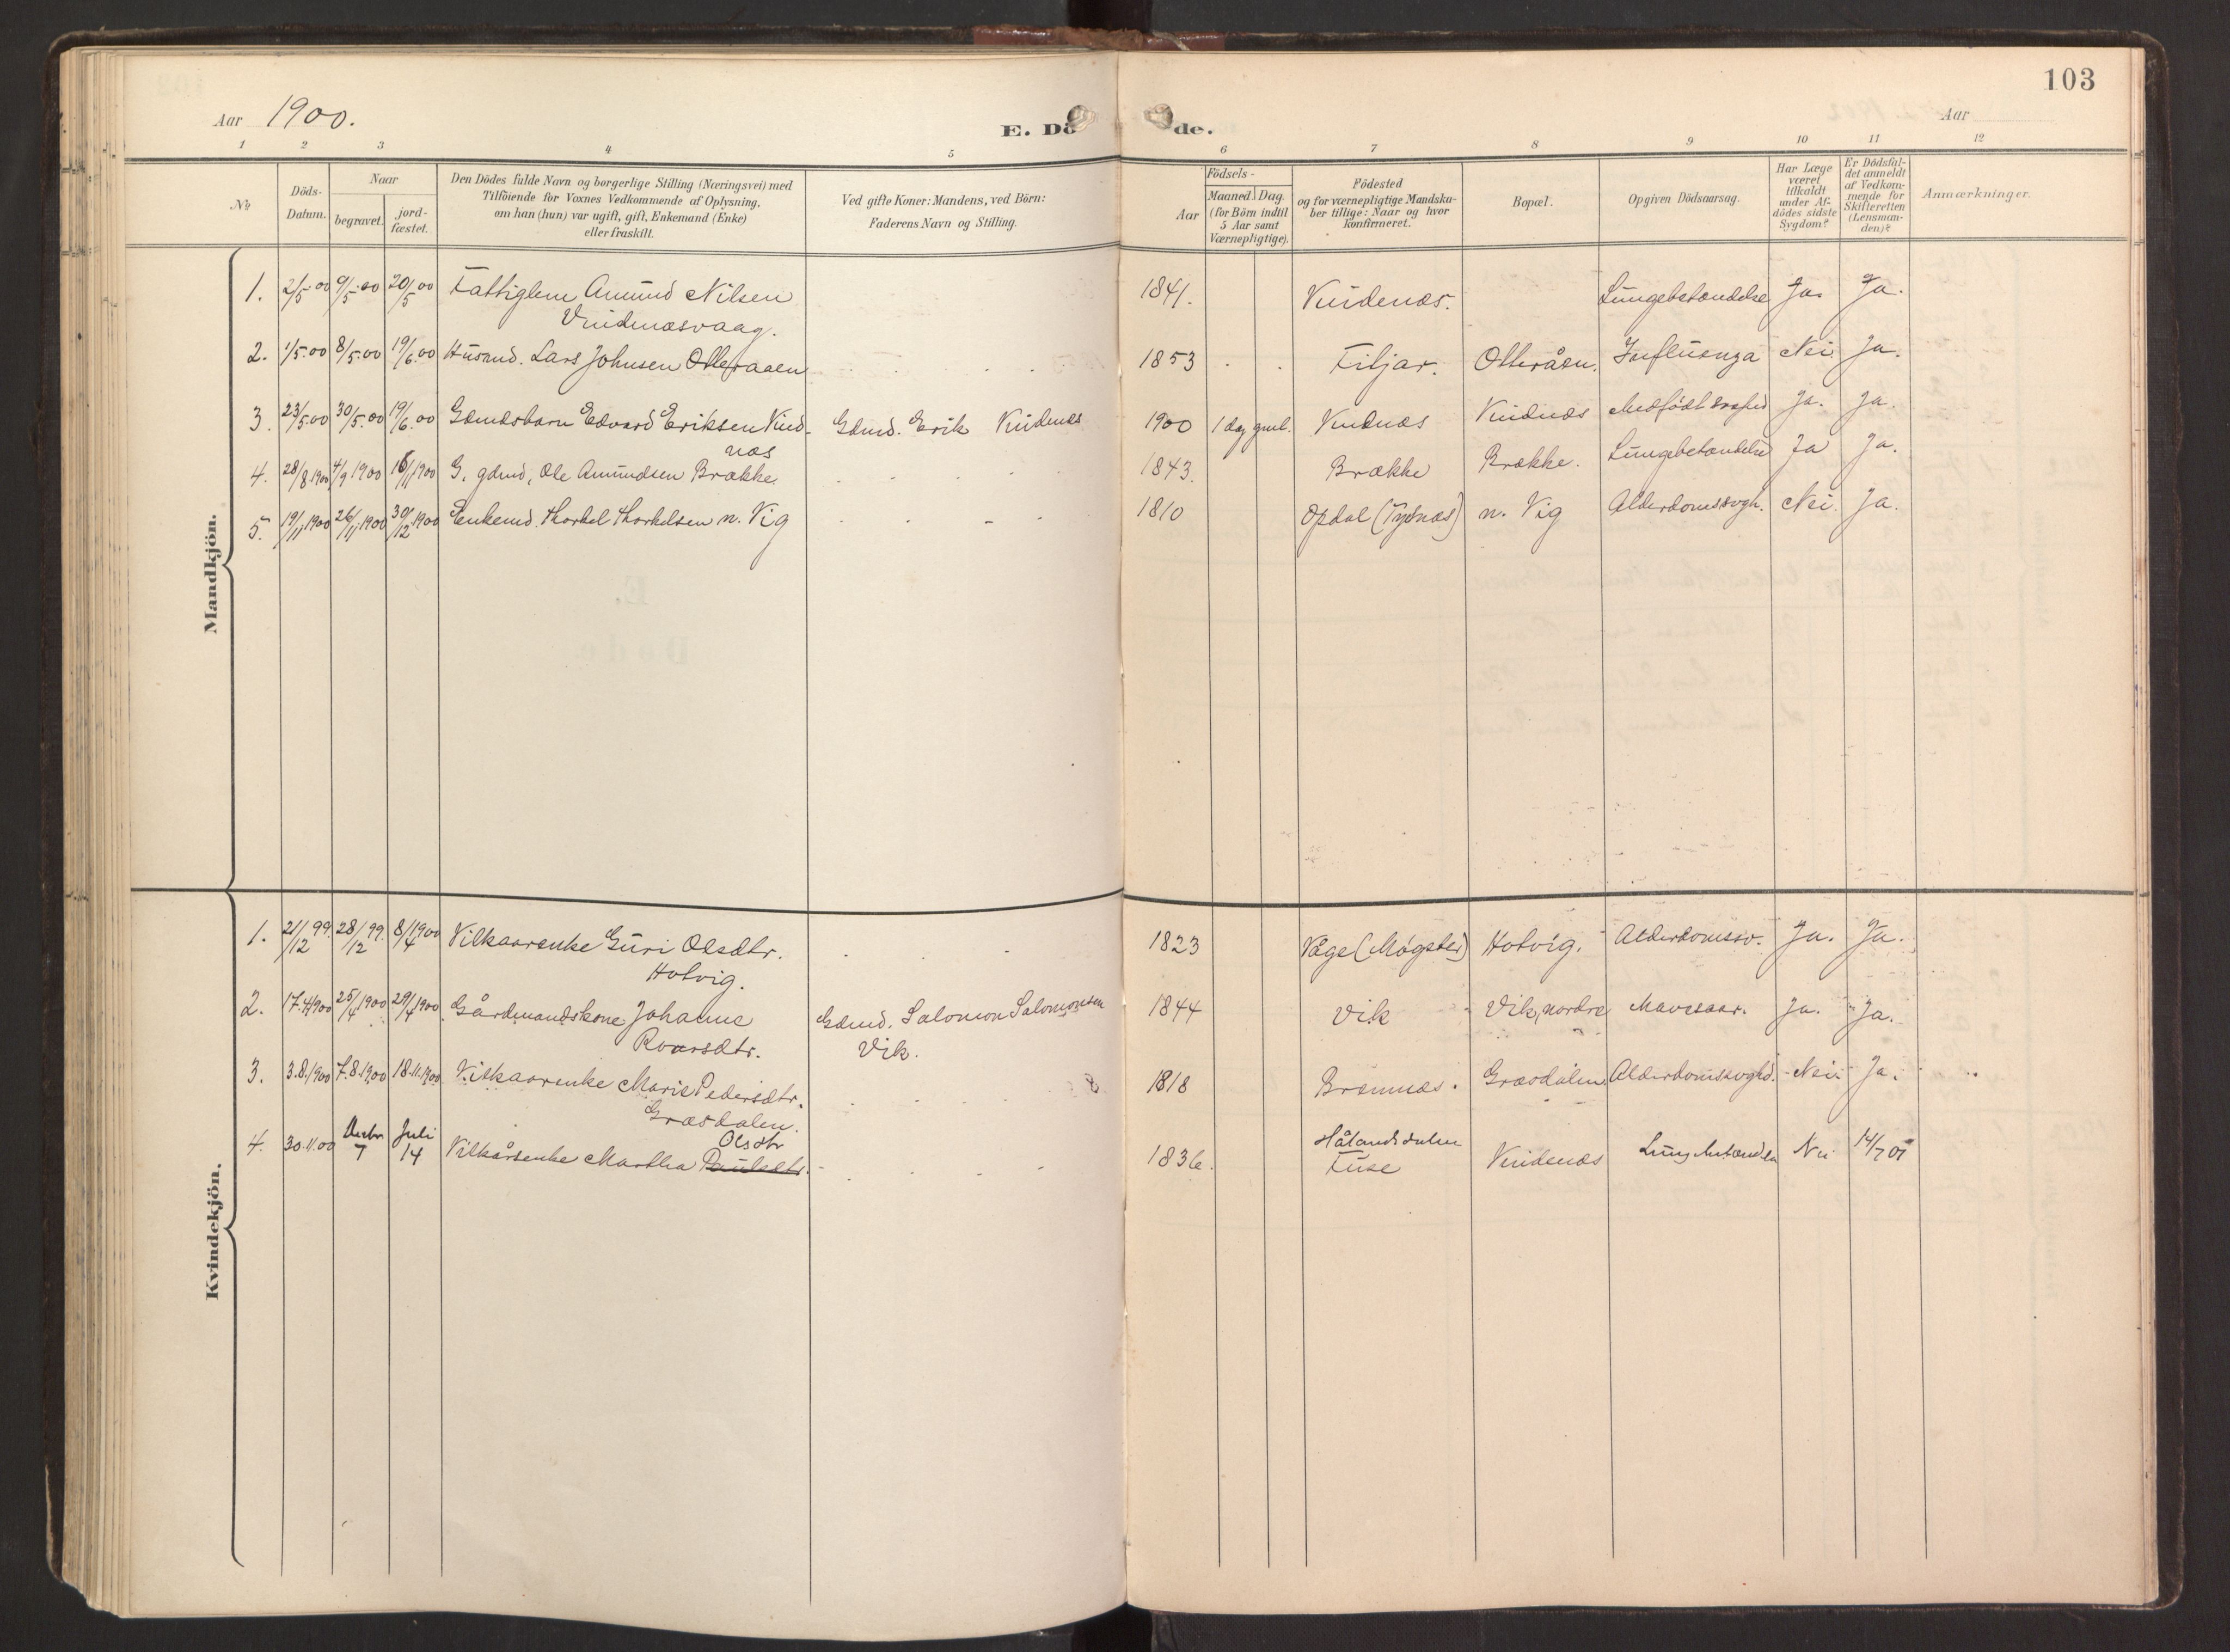 103
Aar 1900.
E. Dö de.
Aar
1 2 3 4 5 6 7 8 9 10 11 12
№
Döds-Datum.
Naar
begravet.
jord-fæstet.
Den Dödes fulde Navn og borgerlige Stilling (Næringsvei) med
Tilföiende for Voxnes Vedkommende af Oplysning,
om han (hun) var ugift, gift, Enkemand (Enke)
eller fraskilt.
Ved gifte Koner: Mandens, ved Börn:
Faderens Navn og Stilling.
Födsels-
Aar
Maaned. Dag.
(for Börn indtil
5 Aar samt
Værnepligtige).
Födested
og for værnepligtige Mandska-
ber tillige: Naar og hvor
konfirmeret.
Bopæl.
Opgiven Dödsaarsag.
Har Læge
været
tilkaldt
under Af-
dödes sidste
Sygdom?
Er Dödsfal-
det anmeldt
af Vedkom-
mende for
Skifteretten
(Lensman-
den)?
Anmærkninger.
Mandkjön.
1. 2/5 00 9/5 00 20/5 00 Fattiglem Amund Nilsen 1841. Vindenæs. Lungebetændelse Ja. Ja.
Vindenæsvaag.
2. 1/5.00 8/5.00 19/6.00 Husmd. Lars Johnsen Otteraaen 1853 Fitjar. Otteråen. Influenza Nei Ja.
3. 23/5.00 30/5.00 19/6.00 Gdmdsbarn Edvard Eriksen Vind- Gdmd. Erik Vindenæs 1900 1 dag gml. Vindnæs Vindnæs Medfödt svaghed Ja. Ja.
næs
4. 28/8.1900 4/9 1900 18/11 1900 G. gdmd, Ole Amundsen Brække 1843. Brække Brække. Lungebetændelse Ja Ja.
5. 19/11 1900 26/11 1900 30/12 1900 Enkemd. Thorkel Thorkelsen n. Vig 1810 Opdal (Tysnæs) n. Vig Alderdomssvgh. Nei. Ja.
Kvindekjön.
1. 21/12 99. 28/12 99. 8/4 1900 Vilkaarsenke Guri Olsdtr. 1823 Våge (Møgster) Hotvig. Alderdomssv. Ja. Ja.
Hotvig.
2. 17.4.1900 25/4 1900 29/4 1900 Gårdmandskone Johanne Gdmd. Salomon Salomonsen 1844 Vik Vik, nordre Mavesaar. Ja. Ja.
Roarsdtr. Vik.
3. 3.8.1900 7.8.1900 18.11.1900 Vilkaarsenke Marie Pedersdtr. 1818 Bremnæs. Græsdalen Alderdomssvghd. Nei Ja.
Græsdalen.
Olsdtr
4. 30.11.00 Decbr 7 Juli 14 Vilkårsenke Martha Paulsdtr. 1836. Hålandsdalen Fuse Vindenæs Lungebetændelse Nei 14/7 01